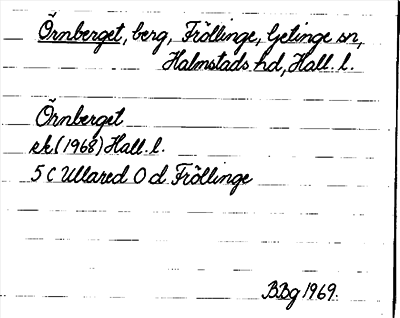 Örnberget, berg, Fröllinge, Getinge sn,
Halmstads hd, Hall. l.
Örnberget
ek (1968) Hall. l.
5 C Ullared O d Fröllinge
BBg 1969.